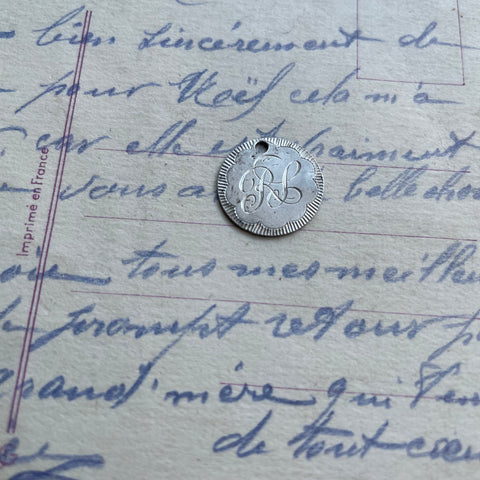 bien sincèrement de
pour Noël cela m'a
car elle est vraiment
vous a belle cho
tous mes meilleu
prompt retour p
grand'mère qui t'em
de tout cœu
Imprimé en France